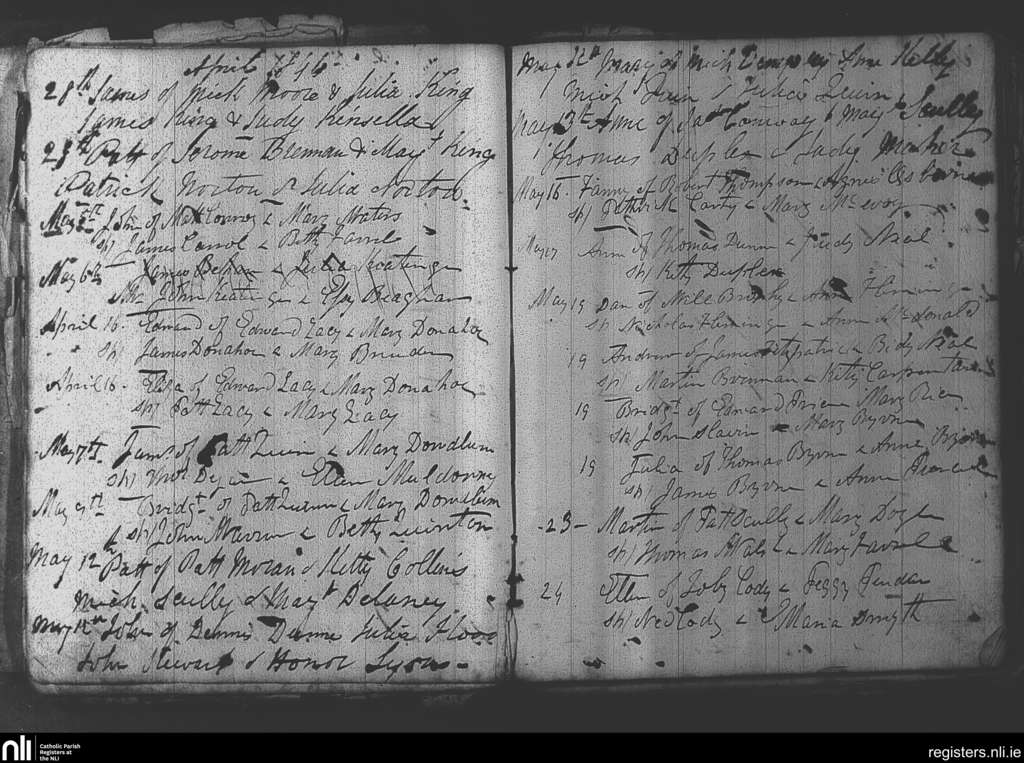 April 1846
28th James of Mick Moore & Julia King
James King & Judy Kinsella
29th Patt of Jerome Brennan & Mayt King
Patrick Norton & Julia Norton
May 5th John of Matt Conroy & Mary Waters
sp/ James Carrol & Betty
May 6th James & Julia Keatinge
John Keatinge &
April 16 Edward of Edward Lacy & Mary Donahoe
sp/ James Donahoe & Mary
April 16 Eliza of Edward Lacy & Mary Donahoe
sp/ Patt Lacy & Mary Lacy
May 7th James of Patt Quin & Mary Dowdlum
sp/ & Ellen Muldowny
May Bridgt of Patt Quinn & Mary Dowdlum
& sp/ John & Betty Quinton
May 12 Patt of Patt Moran & Kitty Collins
Mich Scully & Mayt Delaney
May 12th John of Dennis Dunne Julia Flood
John Stewart & Honor Lyons
May 12th Mary of Mich Anne Kelly
Mich Quin & Julia Quinn
May 13th Anne of Conway & Mayt Scully
Thomas & Judy
May 16 Fanny of Robert Thompson & Agnes Osborne
sp/ Patrick Carty & Mary McEvoy
May 17 Ann of Thomas Dunn & Judy Neal
sp/ Kitty
May 19 Dan of Mill Brophy & Fleminge
sp/ Nicholas Fleminge & Ann McDonald
19 Andrew of James Fitzpatrick & Bidy Neal
sp/ Martin Brennan & Kitty Carpentar
19 Bridgt of Edward Mary
sp/ John Slavin & Mary Byrne
19 Julia of Thomas Byrne & Anne Byrne
sp/ James Byrne & Anne
-23- Martin of Patt Scully & Mary Doyle
sp/ Thomas & Mary
24 Ellen of Toby Cody & Peggy
sp/ Ned Cody & Maria Smyth
nli
Catholic Parish
Registers at
the NLI
registers.nli.ie